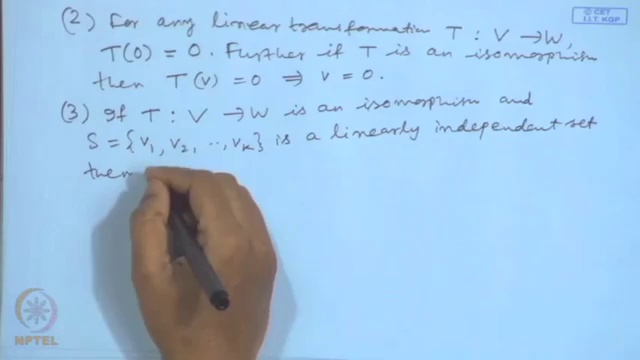 © CET
I.I.T. KGP
(2) For any linear transformation T : V → W,
T(0) = 0. Further if T is an isomorphism
then T(v) = 0 ⇒ v = 0.
(3) If T : V → W is an isomorphism and
S = {v₁, v₂, .., vₖ} is a linearly independent set
then
NPTEL